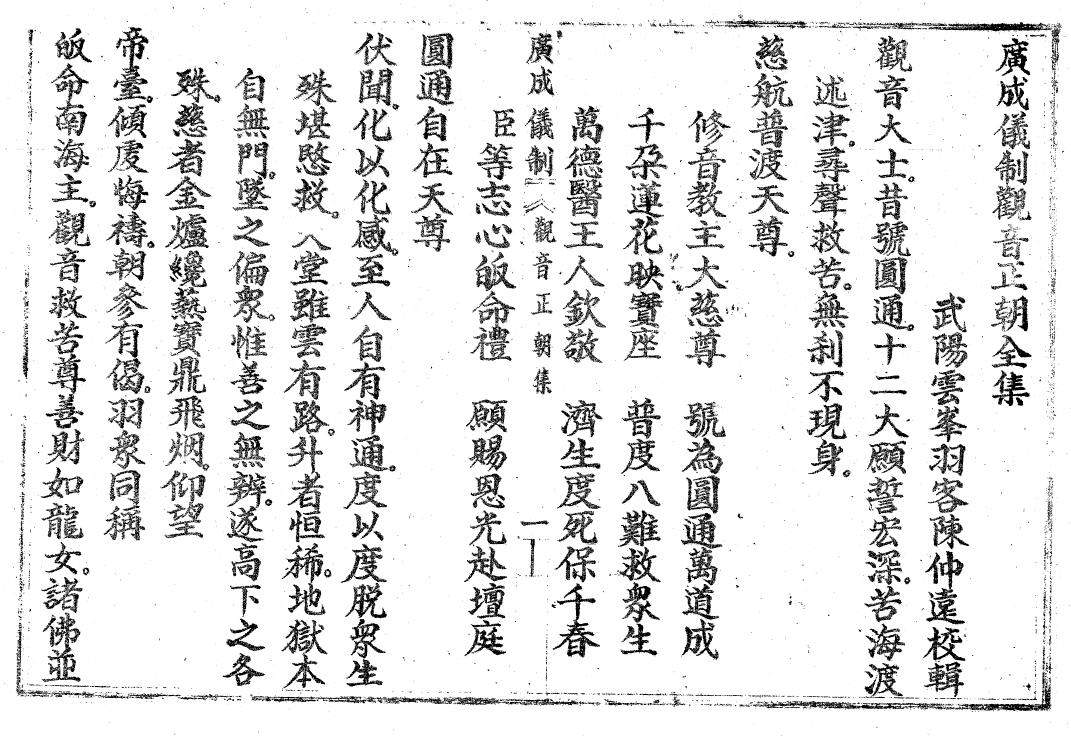 廣成儀制觀音正朝全集
武陽雲峯羽客陳仲遠校輯
觀音大士。昔號圓通。十二大願誓宏深。苦海渡
述津。尋聲救苦。無刹不現身。
慈航普渡天尊。
修音教主大慈尊 號為圓通萬道成
千朶蓮花映寶座 普度八難救衆生
萬德醫王人欽敬 濟生度死保千春
廣成儀制 觀音正朝集 一
臣等志心皈命禮 願賜恩光赴壇庭
圓通自在天尊
伏聞。化以化感。至人自有神通。度以度脱衆生
殊堪愍救。天堂雖雲有路。升者恒稀。地獄本
自無門。墜之偏衆。惟善之無辦。遂高下之各
殊。慈者金爐纔爇寶鼎飛烟。仰望
帝臺。傾虔悔禱。朝參有偈。羽衆同稱
皈命南海主。觀音救苦尊善財如龍女。諸佛並